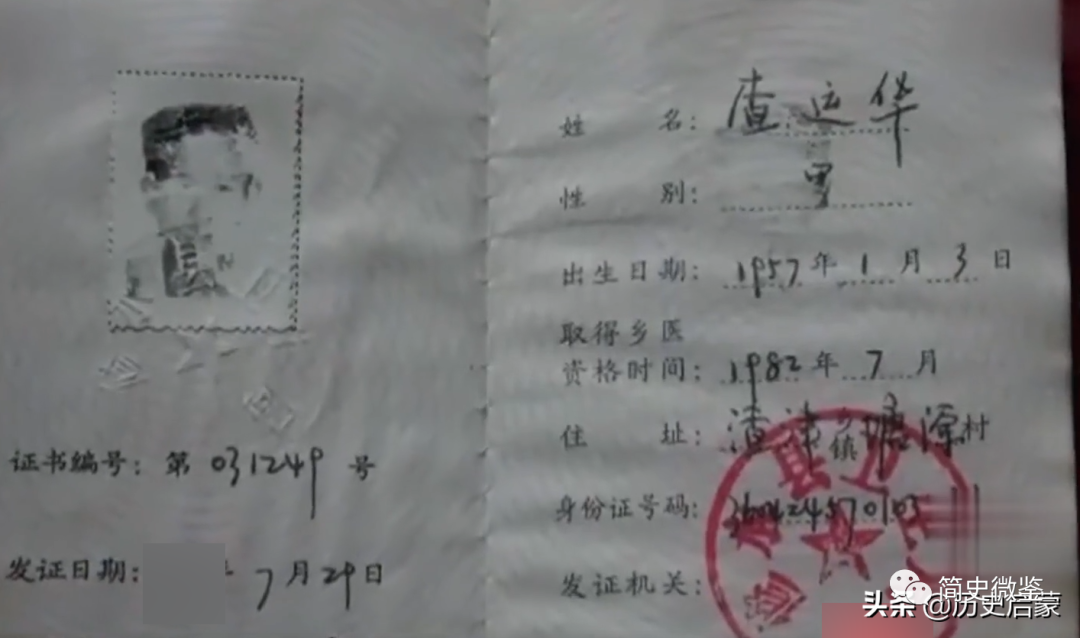 证书编号：第 031249 号
发证日期： 7月29日
姓 名：查运华
性 别：男
出生日期：1957年1月3日
取得乡医
资格时间：1982年7月
住 址：渣津镇塘源村
身份证号码：360424570103
发证机关：
简史微鉴
头条@历史启蒙